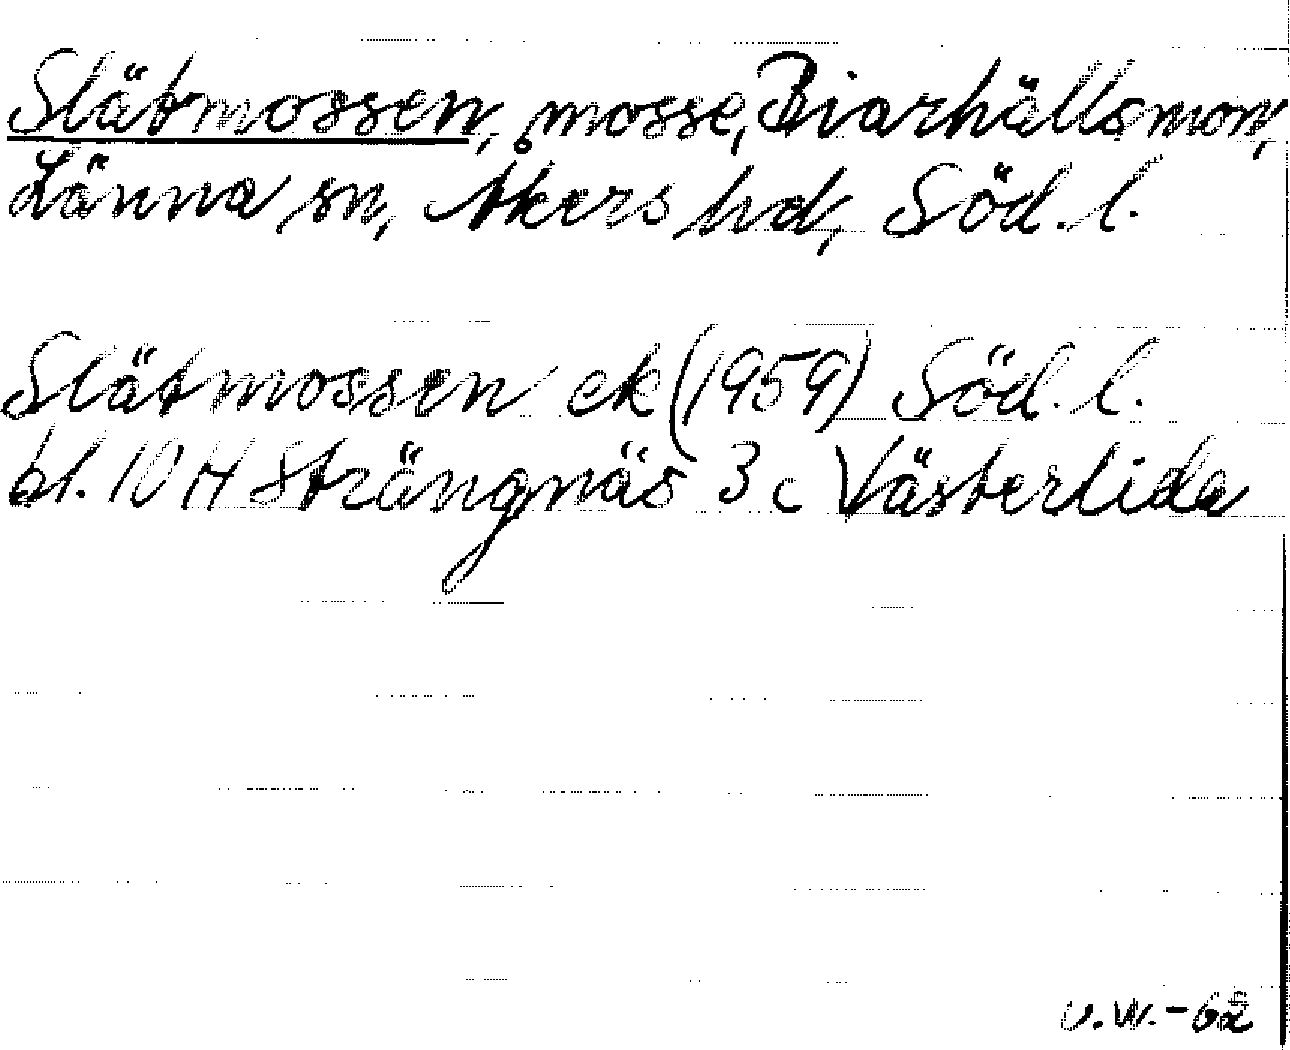 Slätmossen, mosse, Biarhällsmon,
Länna sn, Åkers hd, Söd. l.
Slätmossen ek (1959) Söd. l.
bl. 10 H Strängnäs 3 c Västerlida
V.W.-62